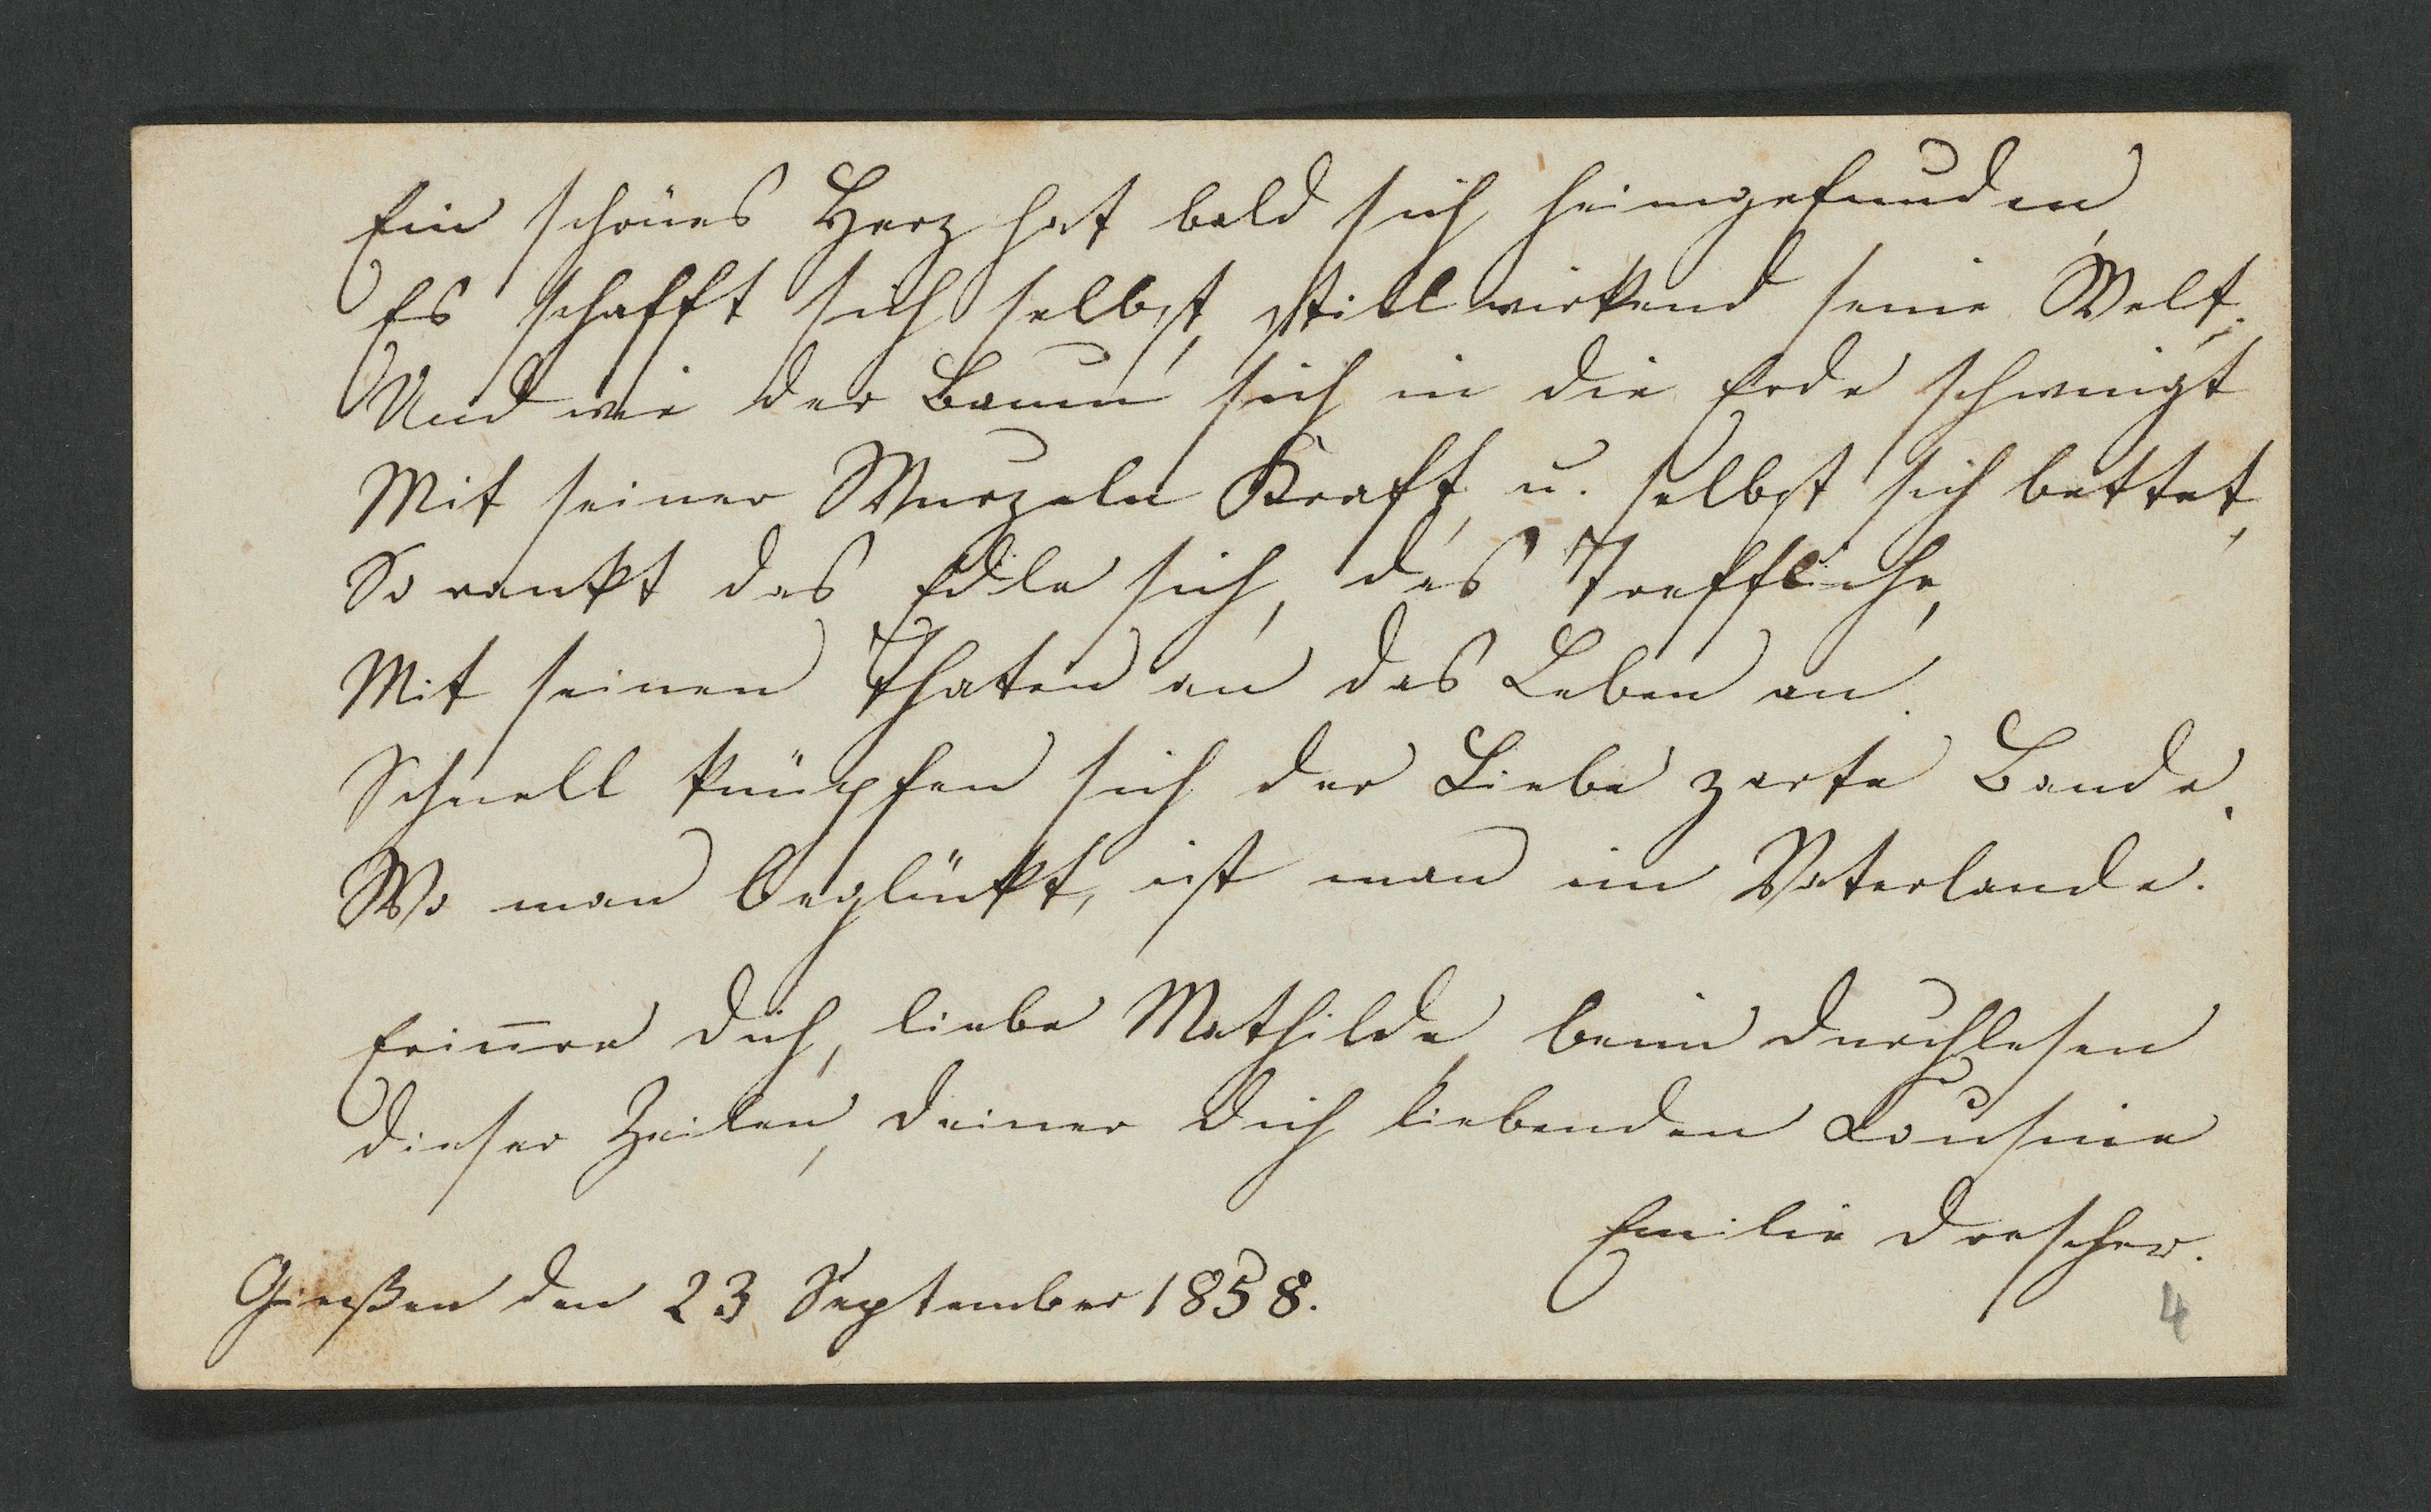 Ein schönes Herz hat bald sich heimgefunden,
Es schafft sich selbst, stillwirkend seine Welt.
Und wie der Baum sich in die Erde schwingt
Mit seiner Wurzeln Kraft, u. selbst sich bettet,
So rankt das Edle sich, das Treffliche,
Mit seinen Thaten an das Leben an.
Schnell knüpfen sich der Liebe zarte Bande,
Wo man beglückt, ist man im Vaterlande.
Erin̄re dich, liebe Mathilde, beim durchlesen
dieser Zeilen, deiner dich liebenden Cousine
Emilie Drescher.
Gießen den 23 September 1858.
4